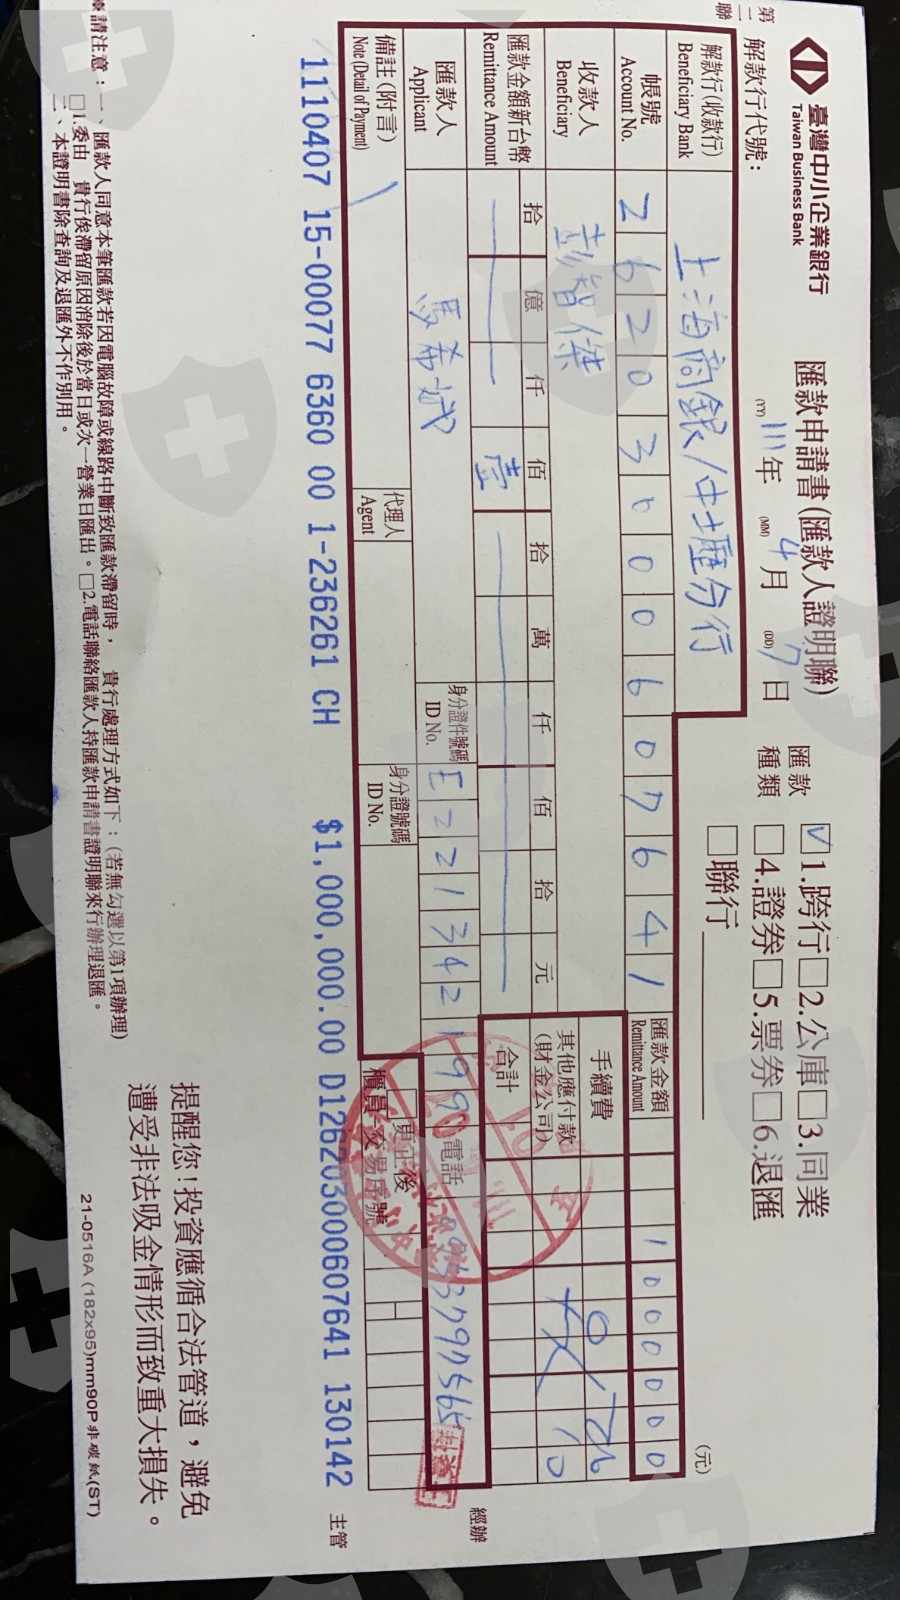 第二聯
臺灣中小企業銀行
Taiwan Business Bank
匯款申請書(匯款人證明聯)
解款行代號:
(YY) 111年 (MM) 4月 (DD) 7日
匯款種類
☑1.跨行□2.公庫□3.同業
□4.證券□5.票券□6.退匯
□聯行
(元)
解款行(收款行):
Beneficiary Bank
上海商銀/中壢分行
帳號
Account No.
26203000607641
匯款金額
Remittance Amount
1000000
收款人
Beneficiary
彭智傑
手續費
其他應付款
(財金公司)
10
合計
匯款金額新台幣
Remittance Amount
拾 億 仟 佰 拾 萬 仟 佰 拾 元
壹
匯款人
Applicant
身分證件號碼
ID No.
E221342199
電話
備註(附言)
Note (Detail of Payment)
代理人
Agent
身分證號碼
ID No.
櫃員 交易序號
經辦
主管
1110407 15-00077 6360 00 1-236261 CH $1,000,000.00 D126203000607641 130142
提醒您!投資應循合法管道,避免
遭受非法吸金情形而致重大損失。
敬請注意:一、匯款人同意本筆匯款若因電腦故障或線路中斷致匯款滯留時,貴行處理方式如下:(若無勾選以第1項辦理)
□1.委由 貴行俟滯留原因消除後於當日或次一營業日匯出。□2.電話聯絡匯款人持匯款申請書證明聯來行辦理退匯。
二、本證明書除查詢及退匯外不作別用。
21-0516A (182x95)mm90P非碳紙(ST)